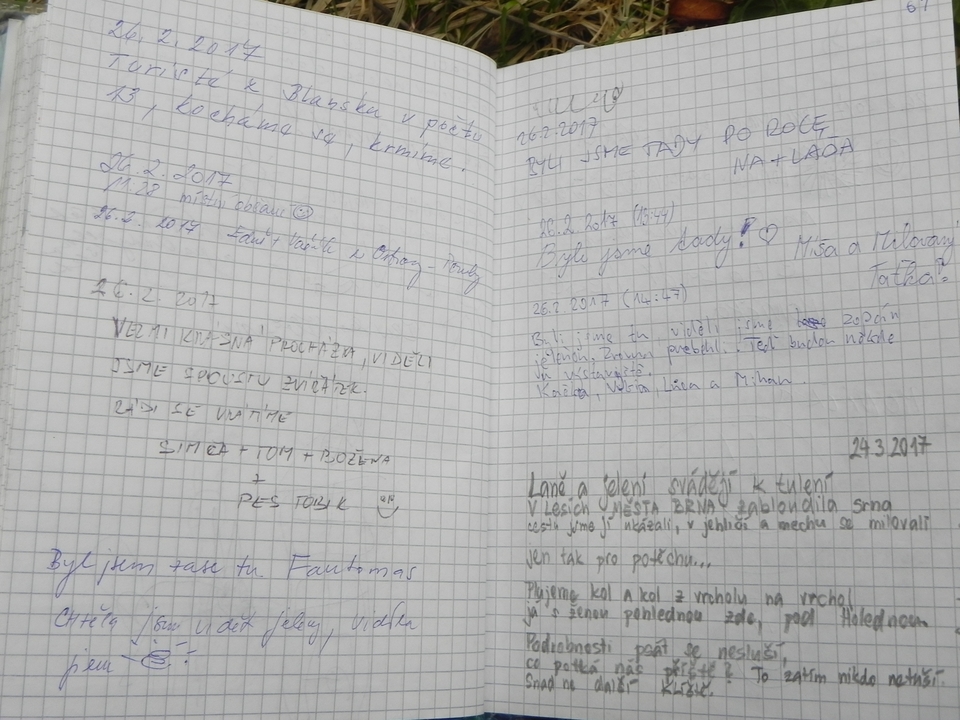 26. 2. 2017
Turisté z Blanska v počtu
13, kocháme se, krmíme.
26. 2. 2017
11.22 místní občani
26.2. 2017 Fáňa + z Ostravy - Poruby
26. 2. 2017
VELMI KRÁSNÁ PROCHÁZKA, VIDĚLI
JSME SPOUSTU ZVÍŘÁTEK.
RÁDI SE VRÁTÍME
SIMČA + TOM + BOŽENA
+
PES TOBIK
Byl jsem zase tu. Fantomas
Chtěla jsem vidět jeleny, viděla
jsem
67
26.2.2017
BYLI JSME TADY PO ROCE
NA + LÁĎA
26.2.2017 (13:44)
Byli jsme tady! ♡ Míša a Milovaný
Taťka
26.2.2017 (14:47)
Byli jsme tu viděli jsme zopár
jelenů, Zrovna přeběhli. Teď budou někde
u
Kačka, Láďa a Mihan.
24.3.2017
Laně a jeleni svádějí k tulení
V Lesích MĚSTA BRNA zabloudila srna
cestu jsme jí ukázali, v jehličí a mechu se milovali
jen tak pro potěchu...
Plujeme kol a kol z vrcholu na vrchol
já s ženou pohlednou zde, pod Holednou
Podrobnosti psát se nesluší,
co potká nás příště? To zatím nikdo netuší.
Snad na další